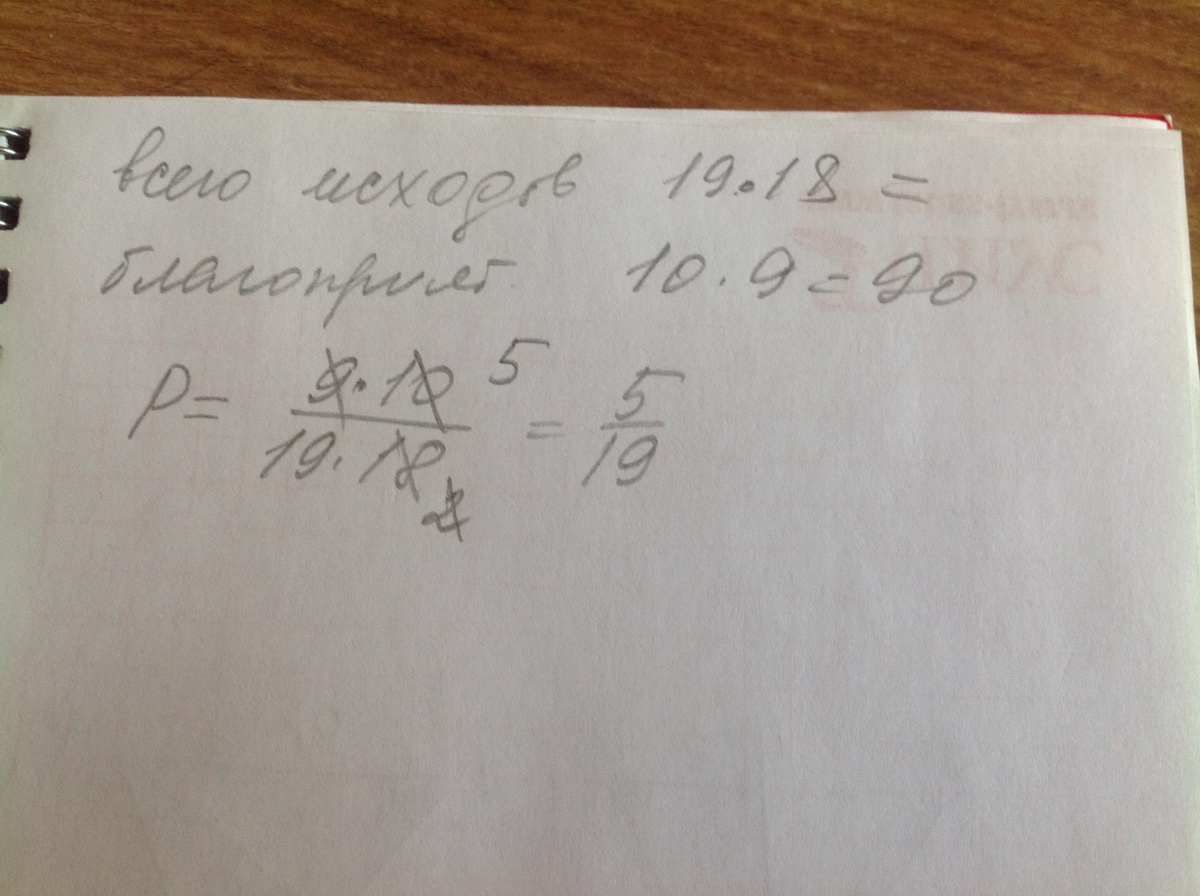 всего исходов 19·18 =
благоприят. 10·9=90
P= 9·10 5 / 19·18 2 = 5/19